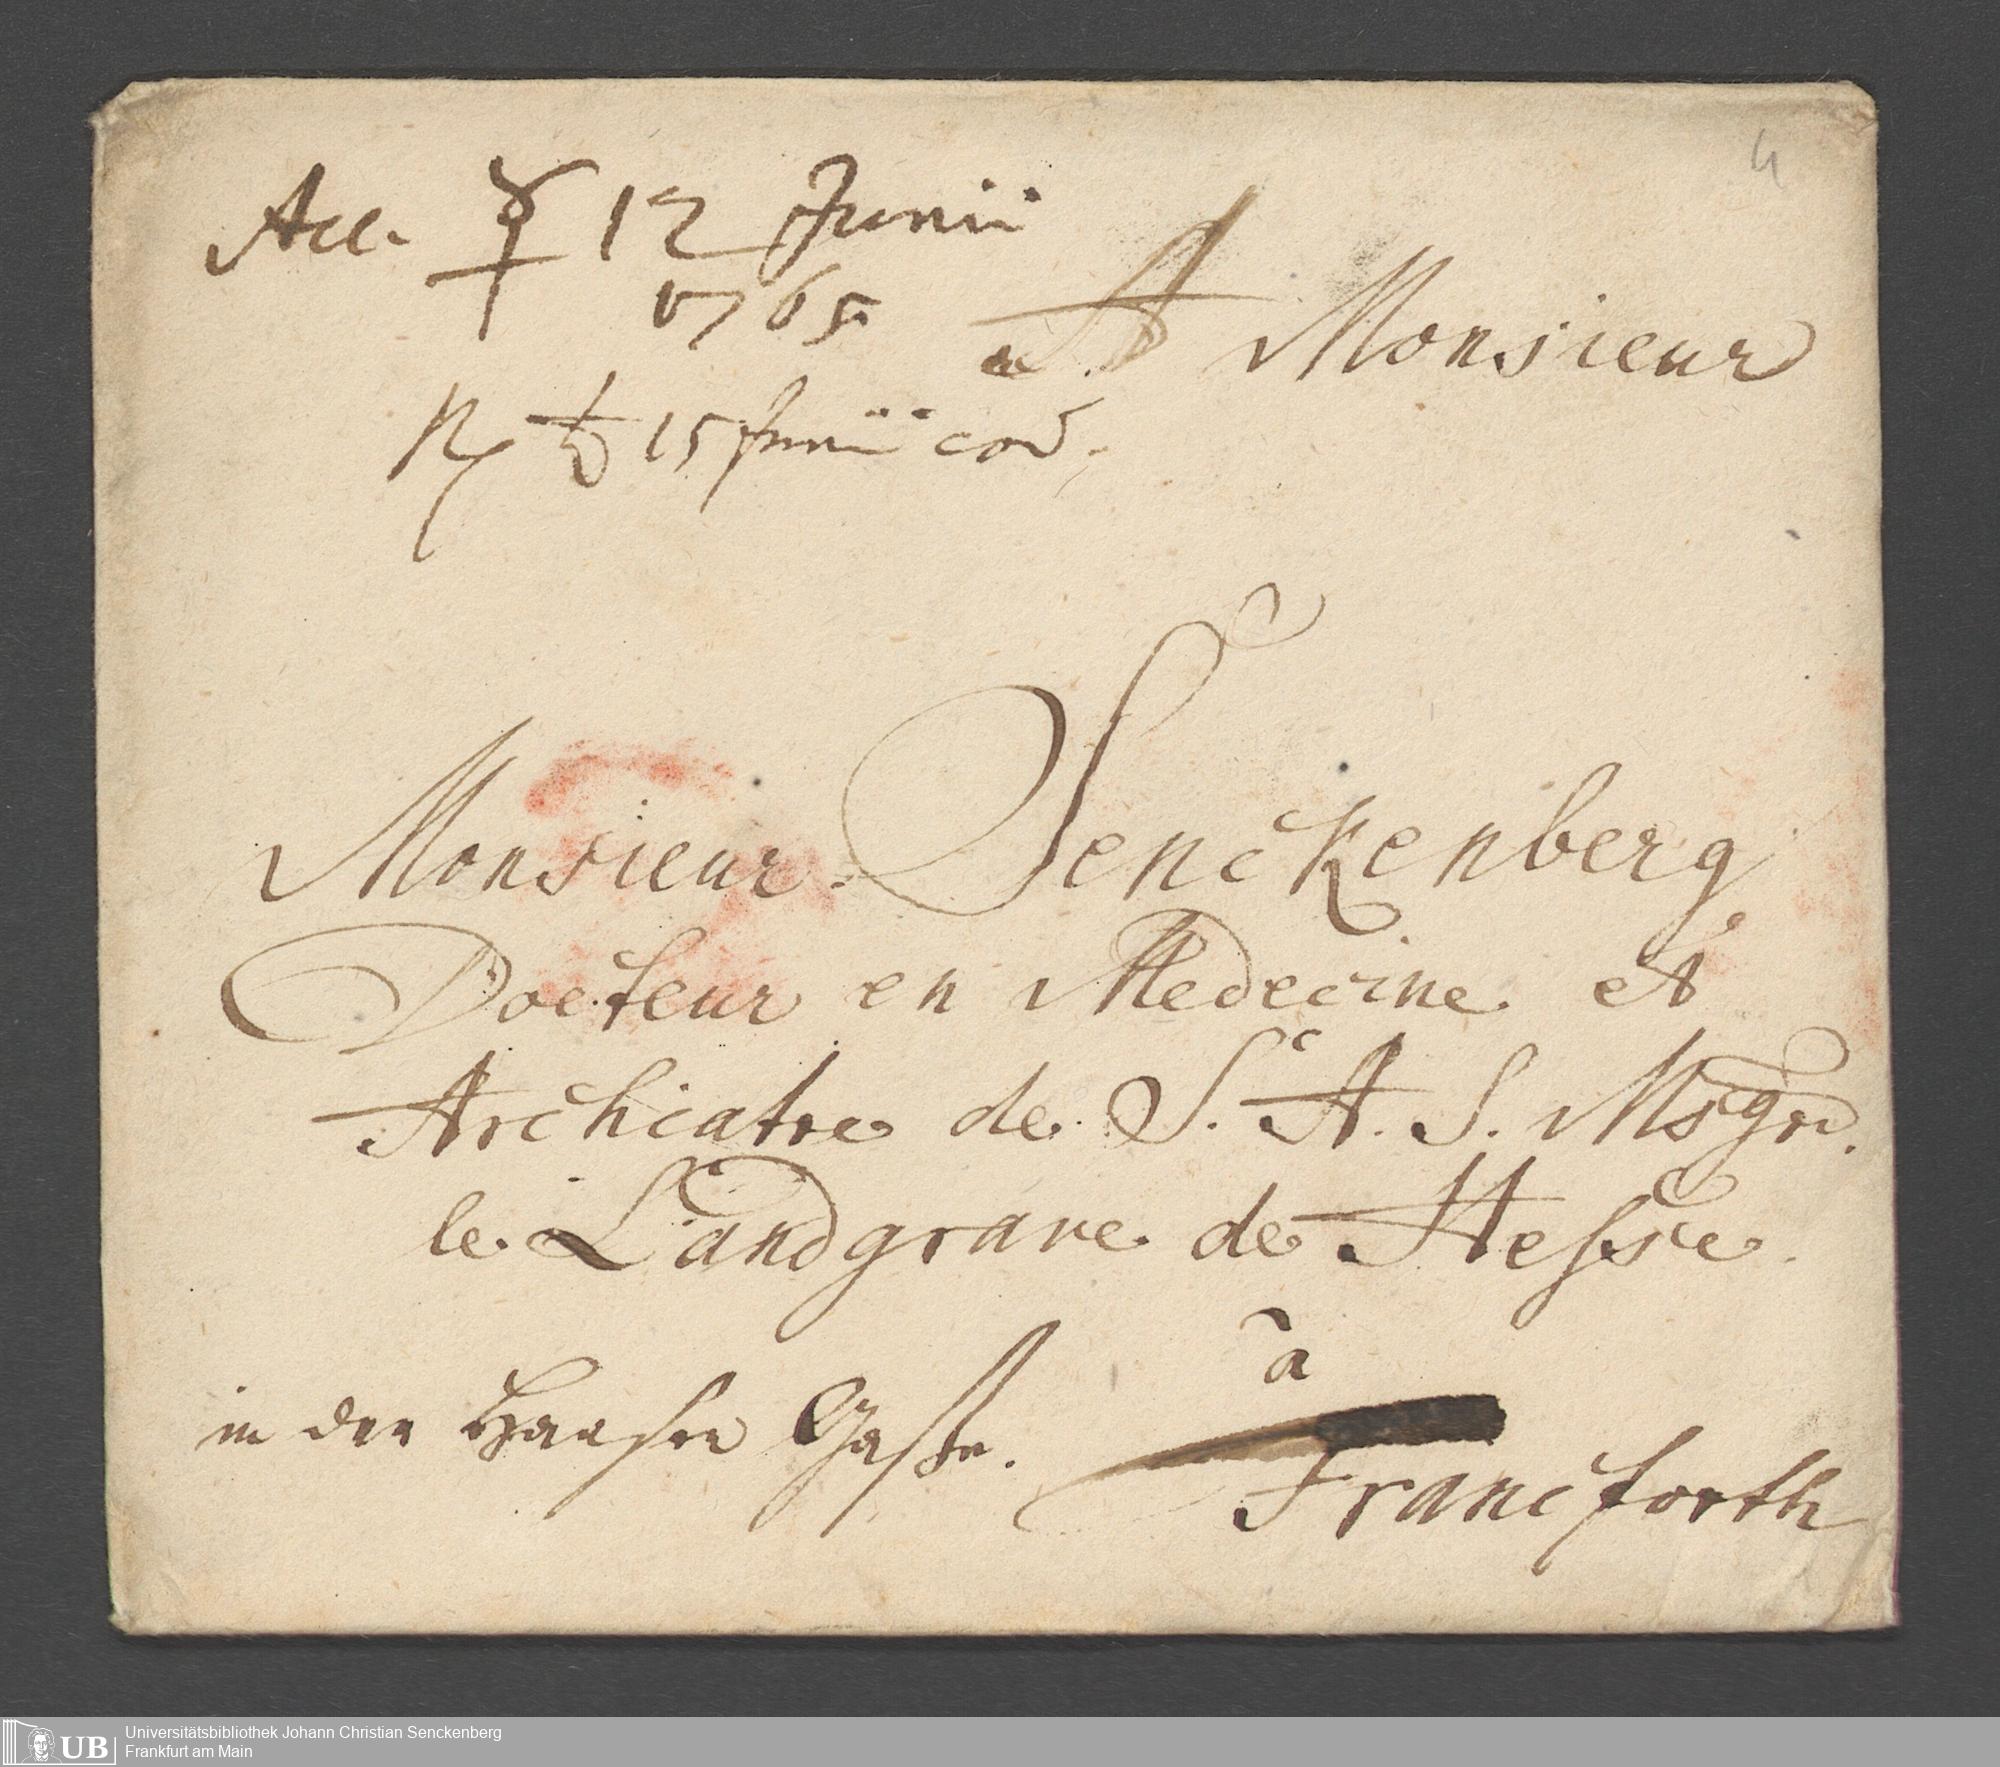 Acc. ☿ 12 Junii
1765.
A Monsieur
R ♄ 15 Junii eod.
4
Monsieur Senckenberg,
Docteur en Medecine et
Archiatre de S. A. S. Msgr.
le Landgrave de Hesse.
à
in der Haasen Gasse.
Francforth
UB
Universitätsbibliothek Johann Christian Senckenberg
Frankfurt am Main